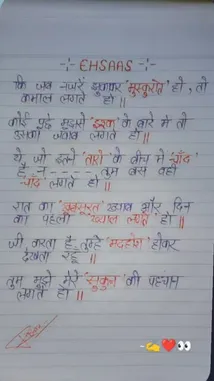 -:- EHSAAS -:-
कि जब नजरें झुकाकर 'मुस्कुराते' हो, तो
कमाल लगते हो ||
कोई पूछे मुझसे 'इश्क' के बारे में तो
उसका जवाब लगते हो ||
ये जो इतने 'तारों' के बीच में 'चाँद'
है न - - - - - तुम बस वही
'चाँद' लगते हो ||
रात का 'खूबसूरत' ख्वाब और दिन
का पहला 'ख्याल' लगते हो ||
जी करता है तुम्हें 'मदहोश' होकर
देखता रहूँ ||
तुम मुझे मेरे 'सुकून' की पहचान
लगते हो ||
-💪❤️👀